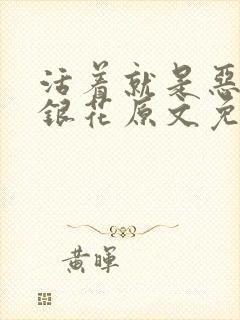 活着就是惡
銀花原文免
黄暉